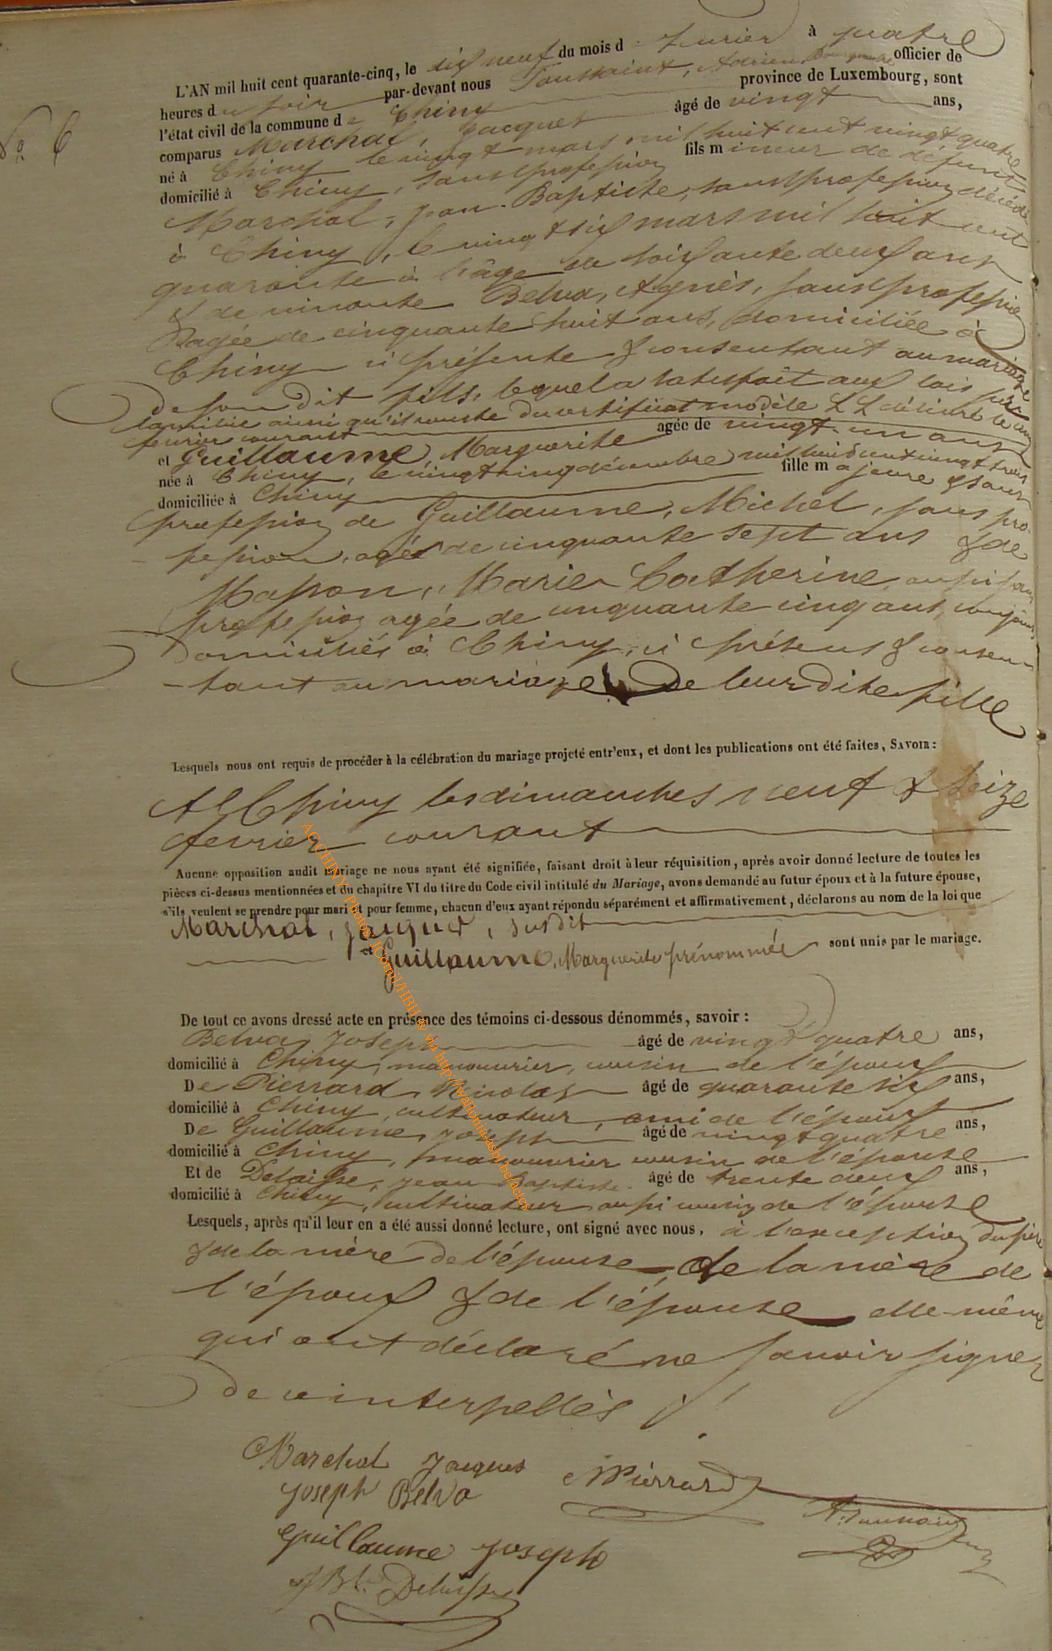 No 6
L'AN mil huit cent quarante-cinq, le dix neuf du mois de fevrier à quatre
heures du soir par-devant nous Toussaint, Adrien, Bourgmestre officier de
l'état civil de la commune de Chiny province de Luxembourg, sont
comparus Marchal, Jacques âgé de vingt ans,
né à Chiny le vingt mars mil huit cent vingt quatre
domicilié à Chiny, sans profession fils mineur de défunt
Marchal, Jean-Baptiste, sans profession, décédé
à Chiny, le vingt six mars mil huit cent
quarante à l'âge de soixante deux ans
& de vivante Belva, Agnès, sans profession
agée de cinquante huit ans, domiciliée à
Chiny ci présente & consentant au mariage
de son dit fils, lequel a satisfait aux lois sur
la milice ainsi qu'il conste du certificat modèle LL délivré le cinq
fevrier courant
et Guillaume, Marguerite agée de vingt un ans
née à Chiny, le vingt cinq décembre mil huit cent vingt trois
domiciliée à Chiny fille majeure & sans
profession de Guillaume, Michel, sans pro-
fession, agé de cinquante sept ans & de
Masson, Marie Catherine aussi sans
profession agée de cinquante cinq ans, conjoints
domiciliés à Chiny, ci présens & consen-
tant au mariage de leur dite fille
Lesquels nous ont requis de procéder à la célébration du mariage projeté entr'eux, et dont les publications ont été faites, SAVOIR:
A Chiny les dimanches neuf & seize
fevrier courant
Aucune opposition audit mariage ne nous ayant été signifiée, faisant droit à leur réquisition, après avoir donné lecture de toutes les
pièces ci-dessus mentionnées et du chapitre VI du titre du Code civil intitulé du Mariage, avons demandé au futur époux et à la future épouse,
s'ils veulent se prendre pour mari et pour femme, chacun d'eux ayant répondu séparément et affirmativement, déclarons au nom de la loi que
Marchal, Jacques, susdit
et Guillaume, Marguerite prénommée sont unis par le mariage.
De tout ce avons dressé acte en présence des témoins ci-dessous dénommés, savoir:
Belva, Joseph âgé de vingt quatre ans,
domicilié à Chiny, manouvrier, cousin de l'époux
De Pierrard, Nicolas âgé de quarante six ans,
domicilié à Chiny, cultivateur, ami de l'époux
De Guillaume, Joseph âgé de vingt quatre ans,
domicilié à Chiny, manouvrier cousin de l'épouse
Et de Delaisse, Jean Baptiste âgé de trente deux ans,
domicilié à Chiny, cultivateur aussi cousin de l'épouse
Lesquels, après qu'il leur en a été aussi donné lecture, ont signé avec nous, à l'exception du père
& de la mère de l'épouse, de la mère de
l'époux & de l'épouse elle-même
qui ont déclaré ne savoir signer
de ce interpellés
Marchal Jacques N Pierrard
Joseph Belva A. Toussaint
Guillaume Joseph
JBte Delaisse